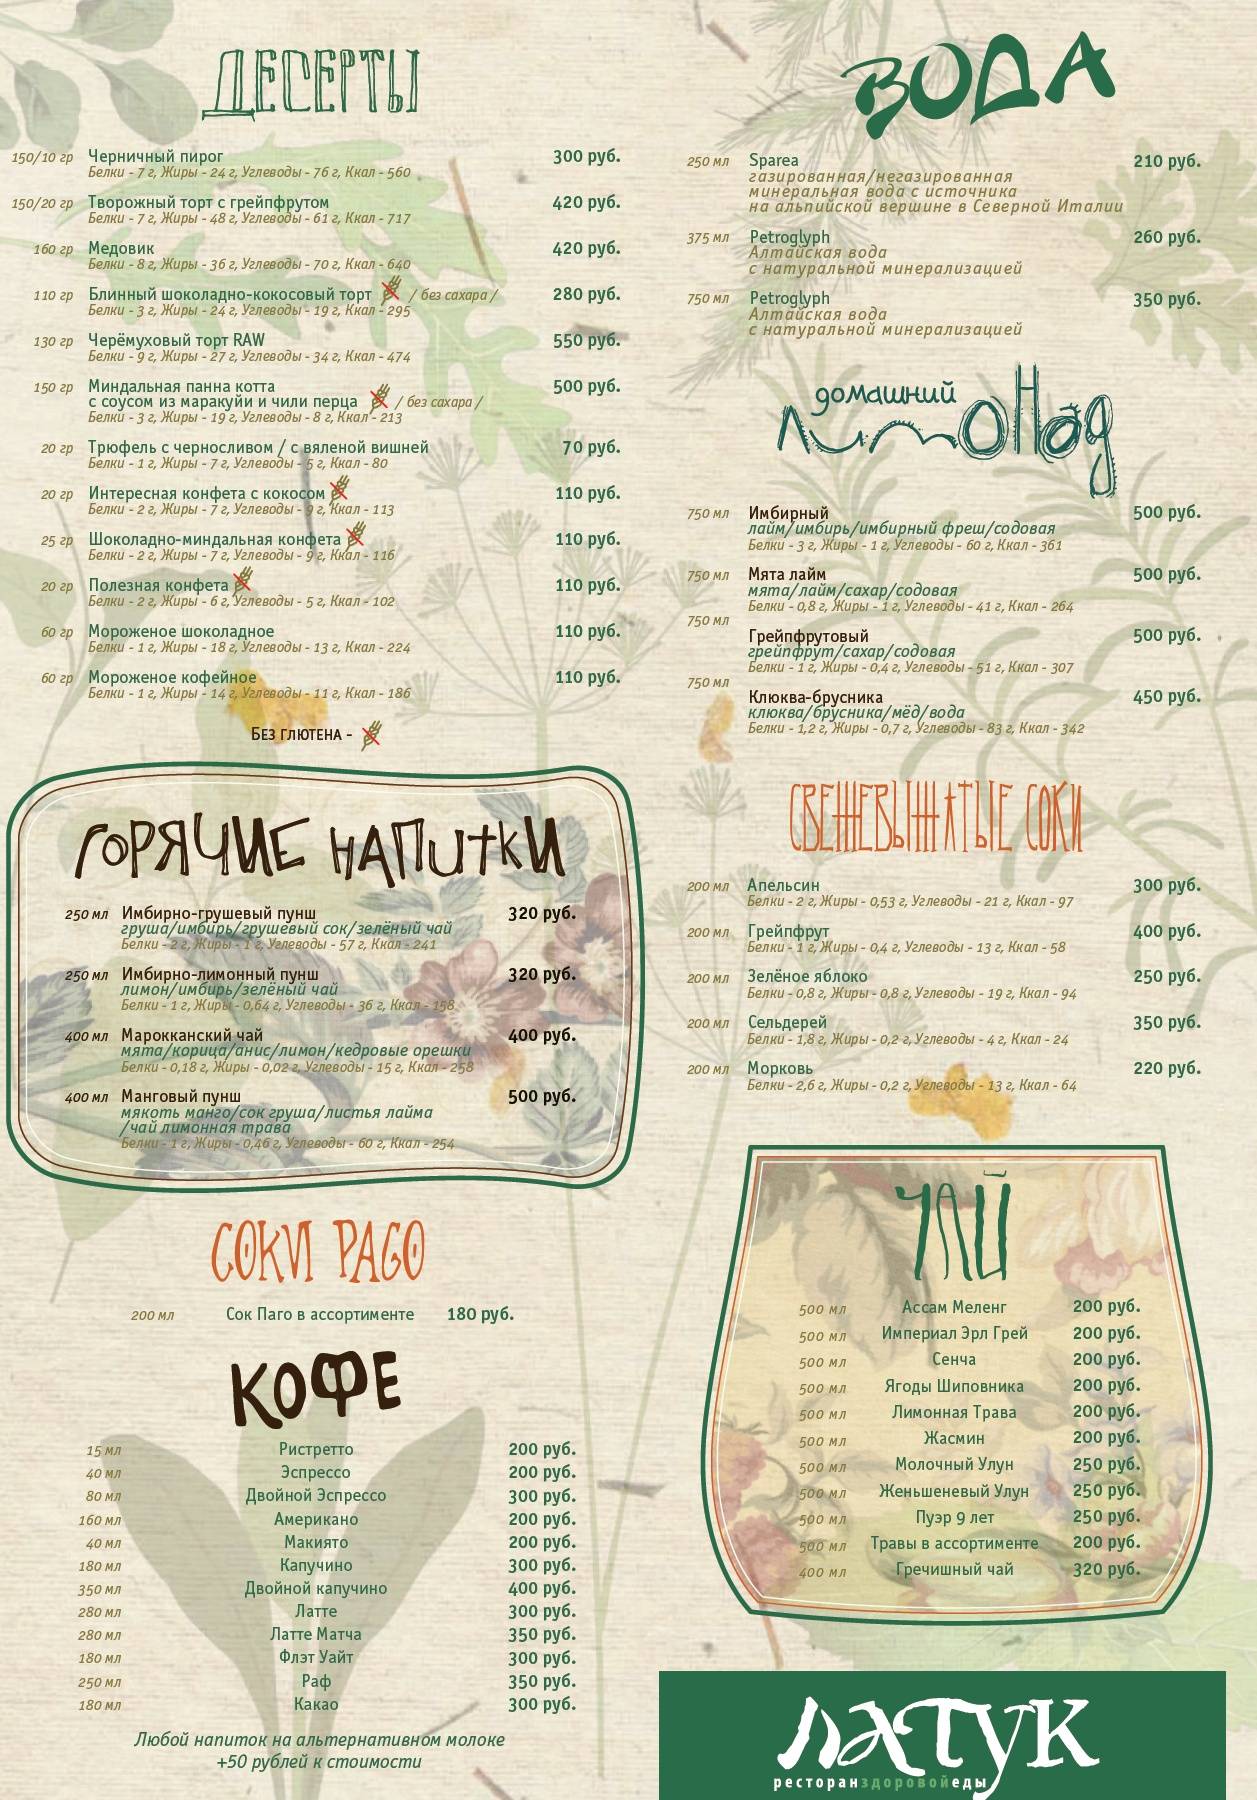 ДЕСЕРТЫ
150/10 гр Черничный пирог 300 руб.
Белки - 7 г, Жиры - 24 г, Углеводы - 76 г, Ккал - 560
150/20 гр Творожный торт с грейпфрутом 420 руб.
Белки - 7 г, Жиры - 48 г, Углеводы - 61 г, Ккал - 717
160 гр Медовик 420 руб.
Белки - 8 г, Жиры - 36 г, Углеводы - 70 г, Ккал - 640
110 гр Блинный шоколадно-кокосовый торт / без сахара / 280 руб.
Белки - 3 г, Жиры - 24 г, Углеводы - 19 г, Ккал - 295
130 гр Черёмуховый торт RAW 550 руб.
Белки - 9 г, Жиры - 27 г, Углеводы - 34 г, Ккал - 474
150 гр Миндальная панна котта 500 руб.
с соусом из маракуйи и чили перца / без сахара /
Белки - 3 г, Жиры - 19 г, Углеводы - 8 г, Ккал - 213
20 гр Трюфель с черносливом / с вяленой вишней 70 руб.
Белки - 1 г, Жиры - 7 г, Углеводы - 5 г, Ккал - 80
20 гр Интересная конфета с кокосом 110 руб.
Белки - 2 г, Жиры - 7 г, Углеводы - 9 г, Ккал - 113
25 гр Шоколадно-миндальная конфета 110 руб.
Белки - 2 г, Жиры - 7 г, Углеводы - 9 г, Ккал - 116
20 гр Полезная конфета 110 руб.
Белки - 2 г, Жиры - 6 г, Углеводы - 5 г, Ккал - 102
60 гр Мороженое шоколадное 110 руб.
Белки - 1 г, Жиры - 18 г, Углеводы - 13 г, Ккал - 224
60 гр Мороженое кофейное 110 руб.
Белки - 1 г, Жиры - 14 г, Углеводы - 11 г, Ккал - 186
Без глютена -
ГОРЯЧИЕ НАПИТКИ
250 мл Имбирно-грушевый пунш 320 руб.
груша/имбирь/грушевый сок/зелёный чай
Белки - 2 г, Жиры - 1 г, Углеводы - 57 г, Ккал - 241
250 мл Имбирно-лимонный пунш 320 руб.
лимон/имбирь/зелёный чай
Белки - 1 г, Жиры - 0,64 г, Углеводы - 36 г, Ккал - 158
400 мл Марокканский чай 400 руб.
мята/корица/анис/лимон/кедровые орешки
Белки - 0,18 г, Жиры - 0,02 г, Углеводы - 15 г, Ккал - 258
400 мл Манговый пунш 500 руб.
мякоть манго/сок груша/листья лайма
/чай лимонная трава
Белки - 1 г, Жиры - 0,46 г, Углеводы - 60 г, Ккал - 254
СОКИ PAGO
200 мл Сок Паго в ассортименте 180 руб.
КОФЕ
15 мл Ристретто 200 руб.
40 мл Эспрессо 200 руб.
80 мл Двойной Эспрессо 300 руб.
160 мл Американо 200 руб.
40 мл Макиято 200 руб.
180 мл Капучино 300 руб.
350 мл Двойной капучино 400 руб.
280 мл Латте 300 руб.
280 мл Латте Матча 350 руб.
180 мл Флэт Уайт 300 руб.
250 мл Раф 350 руб.
180 мл Какао 300 руб.
Любой напиток на альтернативном молоке
+50 рублей к стоимости
ВОДА
250 мл Sparea 210 руб.
газированная/негазированная
минеральная вода с источника
на альпийской вершине в Северной Италии
375 мл Petroglyph 260 руб.
Алтайская вода
с натуральной минерализацией
750 мл Petroglyph 350 руб.
Алтайская вода
с натуральной минерализацией
домашний
лимонад
750 мл Имбирный 500 руб.
лайм/имбирь/имбирный фреш/содовая
Белки - 3 г, Жиры - 1 г, Углеводы - 60 г, Ккал - 361
750 мл Мята лайм 500 руб.
мята/лайм/сахар/содовая
Белки - 0,8 г, Жиры - 1 г, Углеводы - 41 г, Ккал - 264
750 мл
Грейпфрутовый 500 руб.
грейпфрут/сахар/содовая
Белки - 1 г, Жиры - 0,4 г, Углеводы - 51 г, Ккал - 307
750 мл
Клюква-брусника 450 руб.
клюква/брусника/мёд/вода
Белки - 1,2 г, Жиры - 0,7 г, Углеводы - 83 г, Ккал - 342
СВЕЖЕВЫЖАТЫЕ СОКИ
200 мл Апельсин 300 руб.
Белки - 2 г, Жиры - 0,53 г, Углеводы - 21 г, Ккал - 97
200 мл Грейпфрут 400 руб.
Белки - 1 г, Жиры - 0,4 г, Углеводы - 13 г, Ккал - 58
200 мл Зелёное яблоко 250 руб.
Белки - 0,8 г, Жиры - 0,8 г, Углеводы - 19 г, Ккал - 94
200 мл Сельдерей 350 руб.
Белки - 1,8 г, Жиры - 0,2 г, Углеводы - 4 г, Ккал - 24
200 мл Морковь 220 руб.
Белки - 2,6 г, Жиры - 0,2 г, Углеводы - 13 г, Ккал - 64
ЧАЙ
500 мл Ассам Меленг 200 руб.
500 мл Империал Эрл Грей 200 руб.
500 мл Сенча 200 руб.
500 мл Ягоды Шиповника 200 руб.
500 мл Лимонная Трава 200 руб.
500 мл Жасмин 200 руб.
500 мл Молочный Улун 250 руб.
500 мл Женьшеневый Улун 250 руб.
500 мл Пуэр 9 лет 250 руб.
500 мл Травы в ассортименте 200 руб.
400 мл Гречишный чай 320 руб.
латук
ресторанздоровойеды